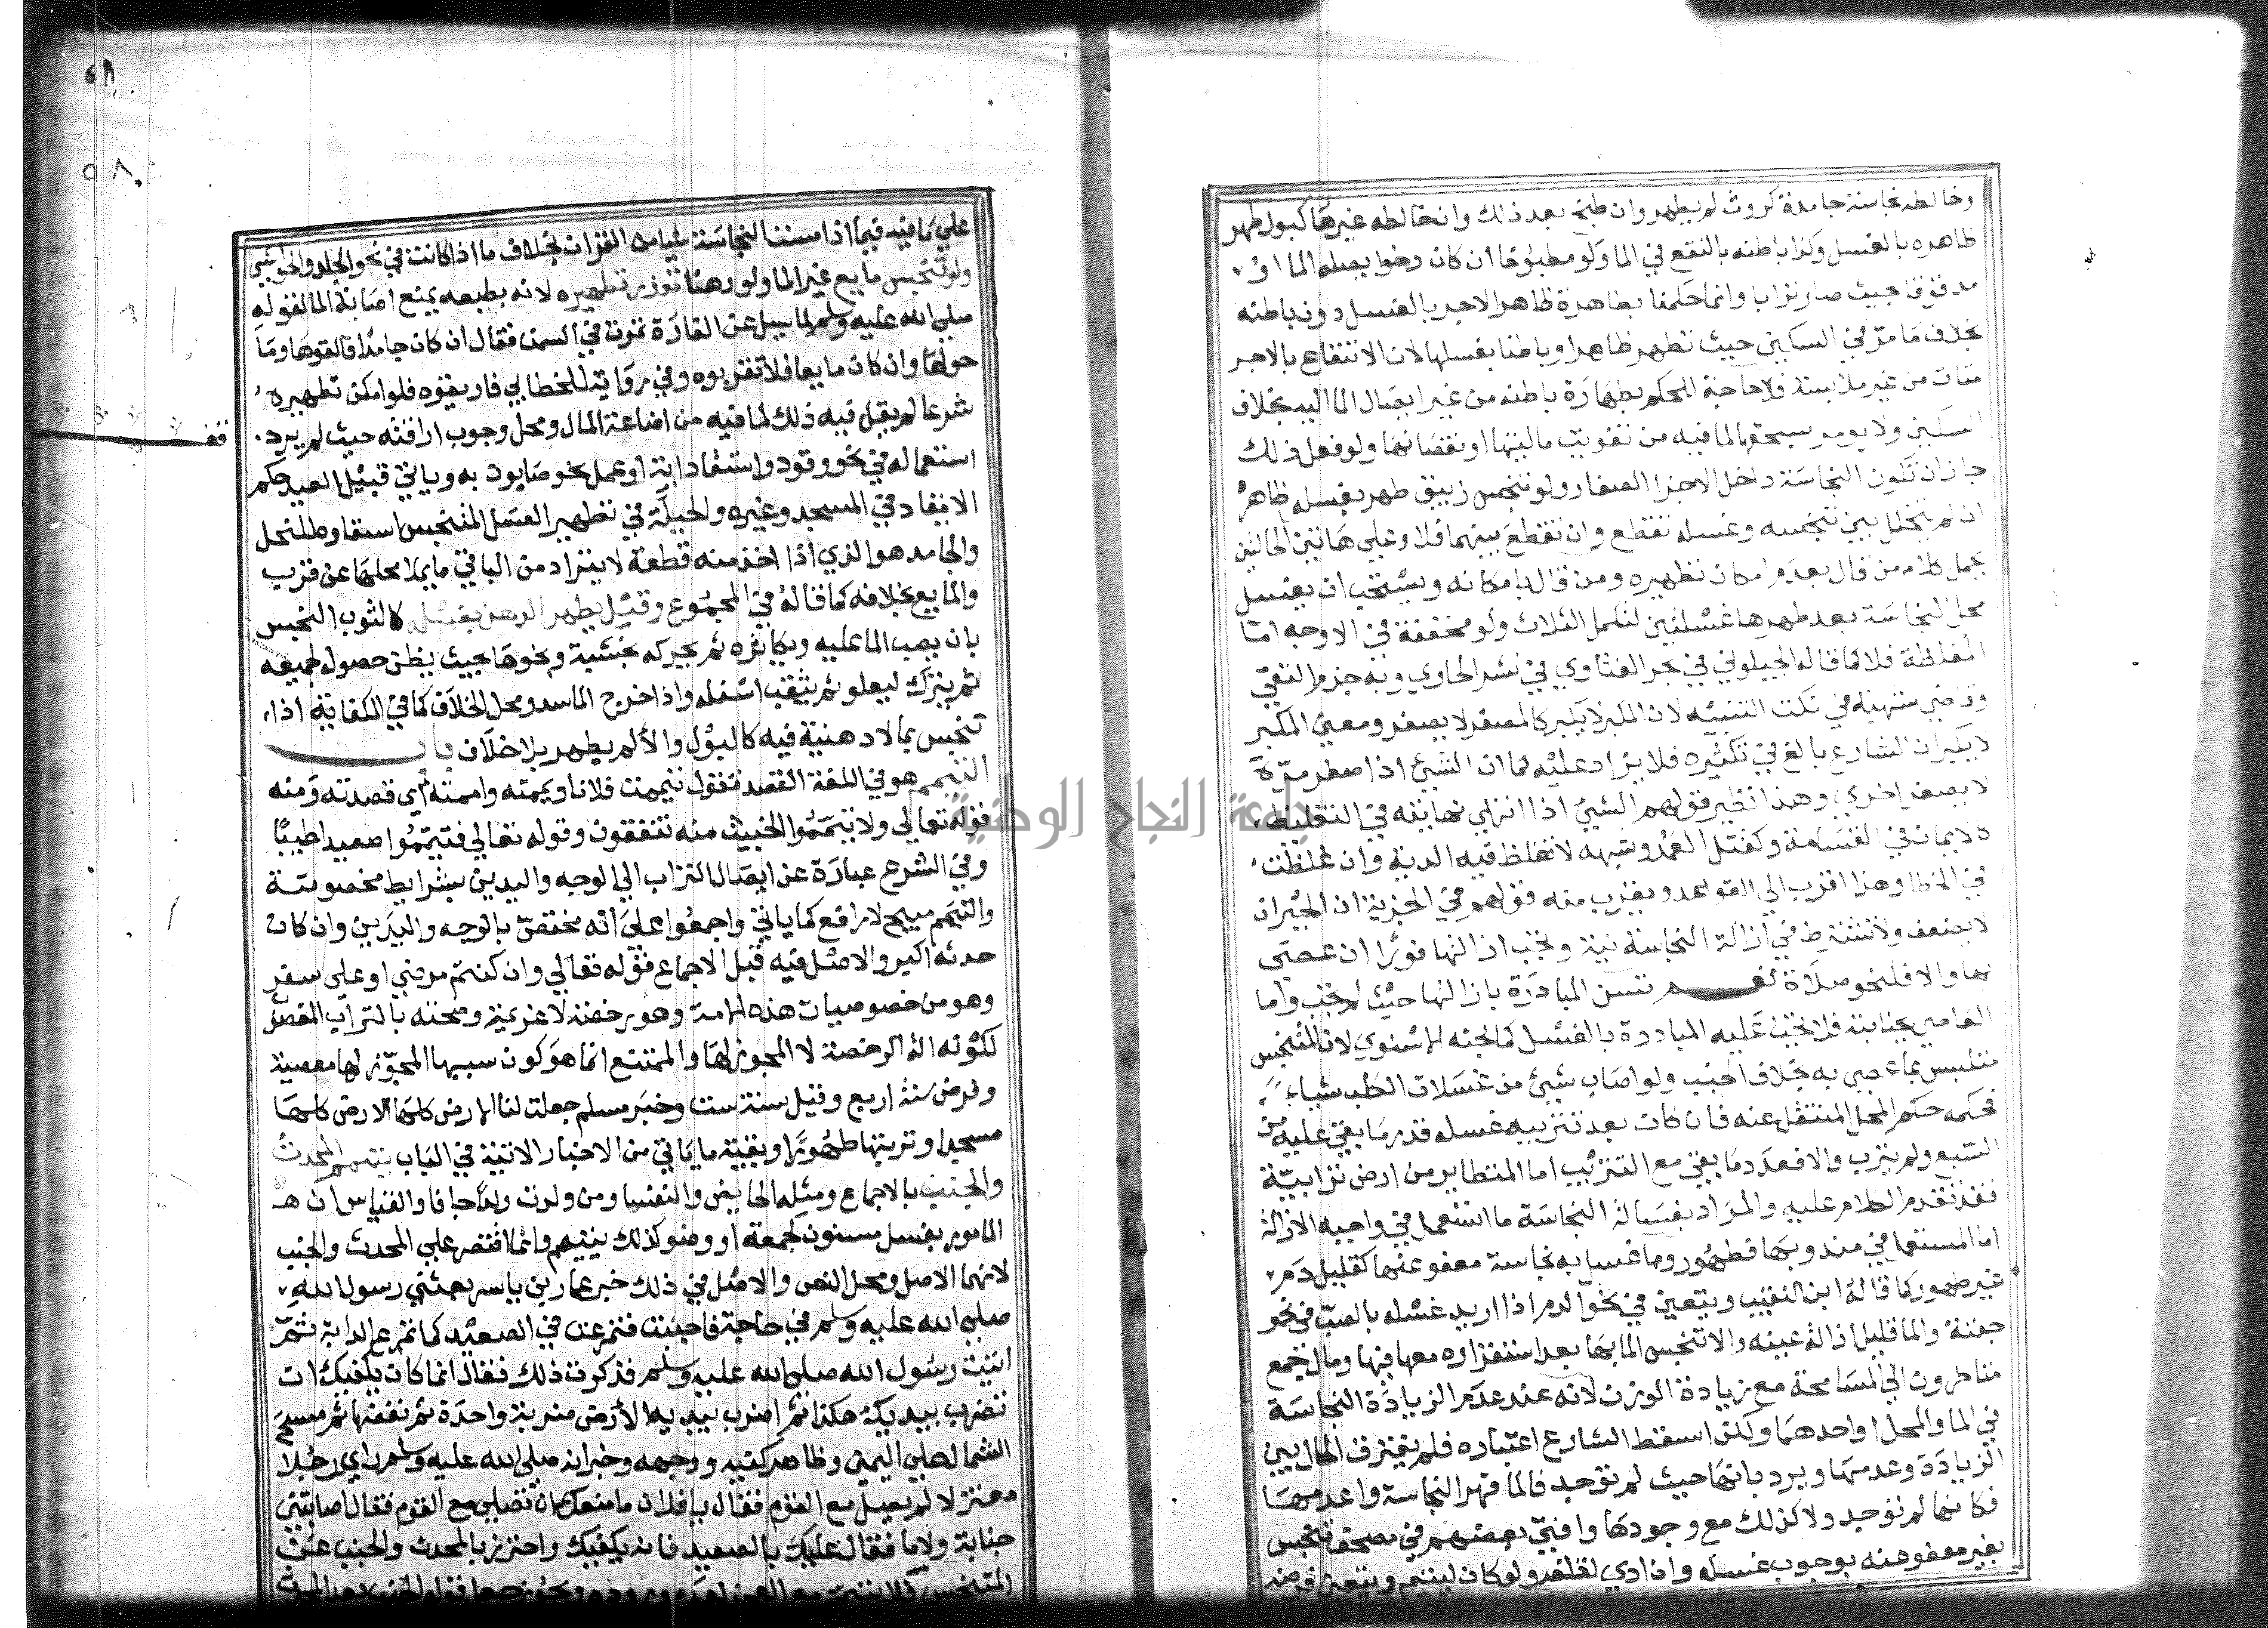 وخالطه نجاسة جامدة كروث لم يطهر وان طبخ بعد ذلك وان خالطه غيرها كبول طهر
ظاهره بالغسل وكذا باطنه بالنقع في الما ولو مطبوخا ان كان رخوا يصله الما او
مدقوقا بحيث صار ترابا وانما حكمنا بطاهرة ظاهر الاجر بالغسل دون باطنه
بخلاف ما مر في السكين حيث تطهر ظاهرا وباطنا بغسلها لان الانتفاع بالاجر
متات من غير ملابسة فلا حاجة للحكم بطهارة باطنه من غير ايصال الما اليه بخلاف
السكين ولا يومر بسحقها لما فيه من تفويت ماليتها او نقصانها ولو فعل ذلك
جاز ان تكون النجاسة داخل الاجزا الصغار ولو تنجس زيبق طهر بغسله ظاهره
ان لم يتخلل بين تنجسه وغسله تقطع وان تقطع بينهما فلا وعلي هاتين الحالتين
يحمل كلام من قال بعدم امكان تطهيره ومن قال بامكانه ويستحب ان يغسل
محل النجاسة بعد طهرها غسلتين لتكمل الثلاث ولو مخففة في الاوجه اما
المغلظة فلا كما قاله الجيلوني في بحر الفتاوي في نشر الحاوي وبه جزم التقي
وقاضي شهبه في نكت التنبيه لان المكبر لا يكبر كالمصغر لا يصغر ومعني المكبر
لا يكبر ان الشارع بالغ في تكثيره فلا يزاد عليه كما ان الشيئ اذا صغر مرة
لا يصغر اخري وهذا نظير قولهم الشيئ اذا انتهي نهايته في التغليظ
كالايمان في القسامة وكقتل العمد وشبهه لا تغلظ فيه الدية وان غلظت
في الخطا وهذا اقرب الي القواعد ويقرب منه قولهم في الجزية ان الجبران
لا يضعف ولا تشترط في ازالة النجاسة نية وتجب ازالتها فورا ان عصي
بها والا فلنحو صلاة نعم تسن المبادرة بازالتها حيث لم تجب واما
العاصي بجنابة فلا تجب عليه المبادرة بالغسل كما بحثه الاسنوي لان المتنجس
متلبس بما عصي به بخلاف الجنب ولو اصاب شيئ من غسلات الكلب شياء
فحكمه حكم المحل المنتقل عنه فان كان بعد تتريبه غسله قدر ما بقي عليه من
السبع ولم يترب والا فعدد ما بقي مع التتريب اما المتطاير من ارض ترابية
فقد تقدم الكلام عليه والمراد بغسالة النجاسة ما استعمل في واجبه الازالة
اما المستعمل في مندوبها فطهور وما غسل به نجاسة معفو عنها كقليل دم
غير طهور كما قاله ابن النقيب ويتعين في نحو الدم اذا اريد غسله بالصب في نحو
جفنة والما قليل ازالة عينه والا تنجس الما بها بعد استقراره معها فيها ومال جمع
متاخرون الي المسامحة مع زيادة الوزن لانه عند عدم الزيادة النجاسة
في الما والمحل او احدهما ولكن اسقط الشارع اعتباره فلم يفترق الحال بين
الزيادة وعدمها ويرد بانها حيث لم توجد فالما قهر النجاسة واعدمها
فكانها لم توجد ولا كذلك مع وجودها وافتي بعضهم في مصحف تنجس
بغير معفو عنه بوجوب غسله وان ادي لتلفه ولو كان ليتيم ويتعين فرضه
٥٨
علي ما فيه فيما اذا مست النجاسة شيا من القران بخلاف ما اذا كانت في نحو الجلد والحواشي
ولو تنجس مايع غير الما ولو دهنا تعذر تطهيره لانه بطبعه يمنع اصابة الما لقوله
صلي الله عليه وسلم لما سيل عن الفارة تموت في السمن فقال ان كان جامدا فالقوها وما
حولها وان كان مايعا فلا تقربوه وفي رواية للخطابي فاريقوه فلو امكن تطهيره
شرعا لم يقل فيه ذلك لما فيه من اضاعة المال ومحل وجوب اراقته حيث لم يرد
استعماله في نحو وقود واستقاد دابة او عمل نحو صابون به وياتي قبيل العيد حكم
الايقاد في المسجد وغيره والحيلة في تطهير العسل المتنجس اسقاوه للنحل
والجامد هو الذي اذا اخذ منه قطعة لا يتراد من الباقي ما يملا محلها عن قرب
والمايع بخلافه كما قاله في المجموع وقيل يطهر الدهن بغسله كالثوب النجس
بان يصب الما عليه ويكاثره ثم يحركه بخشبة ونحوها بحيث يظن حصوله لجميعه
ثم يترك ليعلو ثم يثقب اسفله واذا خرج الما سد ومحل الخلاف كما في الكفاية اذا
تنجس بما لا دهنية فيه كالبول والا لم يطهر بلا خلاف باب
التيمم هو في اللغة القصد تقول تيممت فلانا ويممته واممته اي قصدته ومنه
قوله تعالي ولا تيمموا الخبيث منه تنفقون وقوله تعالي فتيمموا صعيدا طيبا
وفي الشرع عبارة عن ايصال التراب الي الوجه واليدين بشرايط مخصوصة
والتيمم مبيح لا رافع كما ياتي واجمعوا علي انه مختص بالوجه واليدين وان كان
حدثه اكبر والاصل فيه قبل الاجماع قوله تعالي وان كنتم مرضي او علي سفر
وهو من خصوصيات هذه الامة وهو رخصة لا عزيمة وصحته بالتراب المغصوب
لكونه الة الرخصة لا المجوز لها والممتنع انما هو كون سببها المجوز لها معصية
وفرض سنة اربع وقيل سنة ست وخبر مسلم جعلت لنا الارض كلها
مسجدا وتربتها طهورا وبقية ما ياتي من الاخبار الاتية في الباب يتيمم المحدث
والجنب بالاجماع ومثله الحايض والنفسا ومن ولدت ولدا جافا والقياس ان
المامور بغسل مسنون لجمعة او وضو كذلك يتيمم وانما اقتصر علي المحدث والجنب
لانهما الاصل ومحل النص والاصل في ذلك خبر عمار بن ياسر بعثني رسول الله
صلي الله عليه وسلم في حاجة فاجنبت فتمرغت في الصعيد كما تمرغ الدابة ثم
اتيت رسول الله صلي الله عليه وسلم فذكرت ذلك فقال انما كان يكفيك ان
تضرب بيديك هكذا ثم ضرب بيديه الارض ضربة واحدة ثم نفضها ثم مسح
الشمال علي اليمني وظاهر كفيه ووجهه وخبر انه صلي الله عليه وسلم راي رجلا
معتزلا لم يصل مع القوم فقال يا فلان ما منعك ان تصلي مع القوم فقال اصابتني
جنابة ولا ما فقال عليك بالصعيد فانه يكفيك واحترز بالمحدث والجنب عن
المتنجس فلا يتيمم